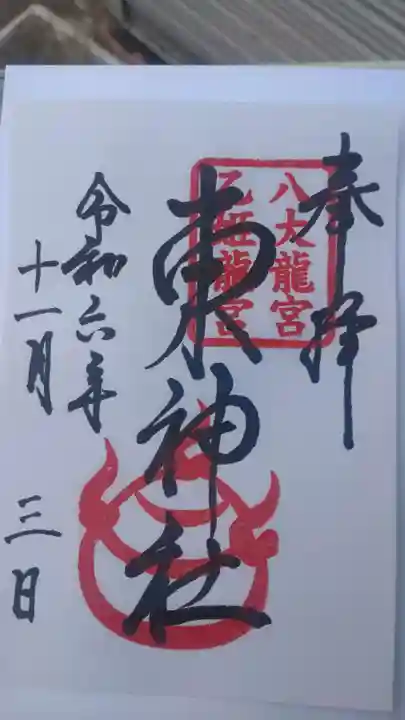 奉拝
八大龍宮
乙姫龍宮
東神社
令和六年
十一月
三日